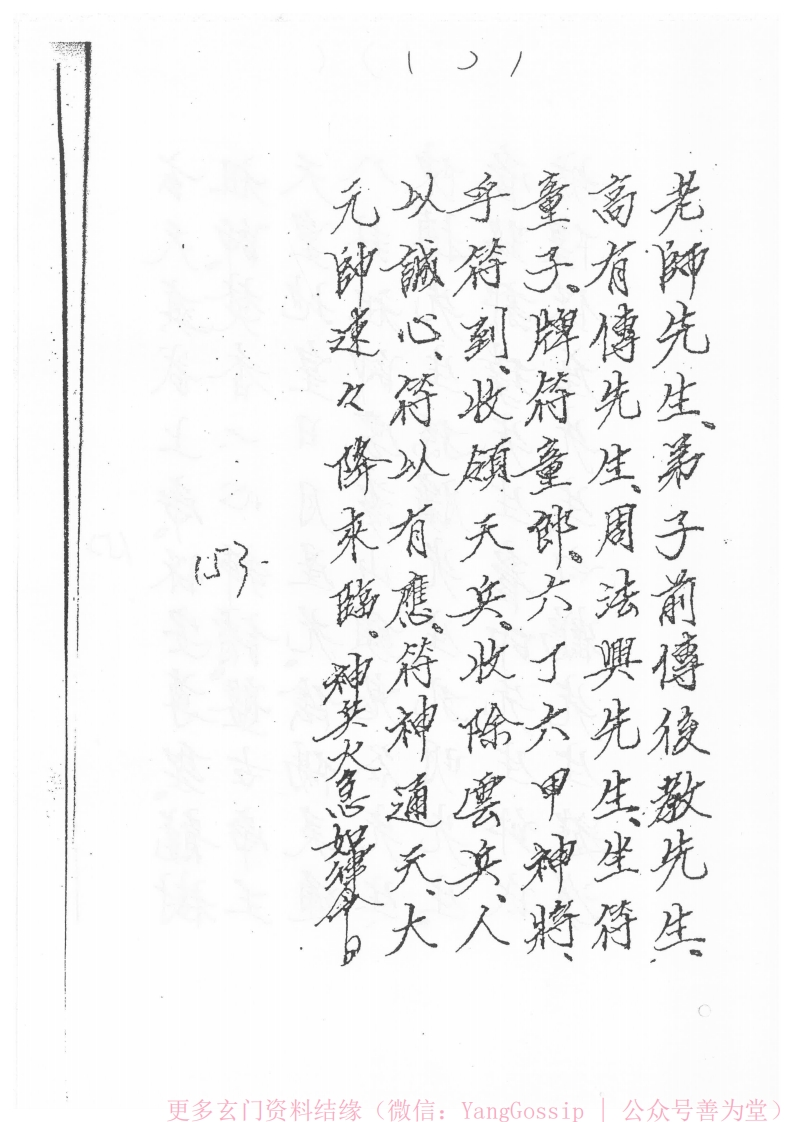 老師先生、弟子前傳後教先生、
高有傳先生、周法興先生、坐符
童子、牌符童郎、六丁六甲神將、
乎符到、收領天兵、收除雲兵、人
以誠心、符以有應、符神通天、大
元帥速々降來臨、神兵火急如律令
153
更多玄门资料结缘（微信：YangGossip | 公众号善为堂）